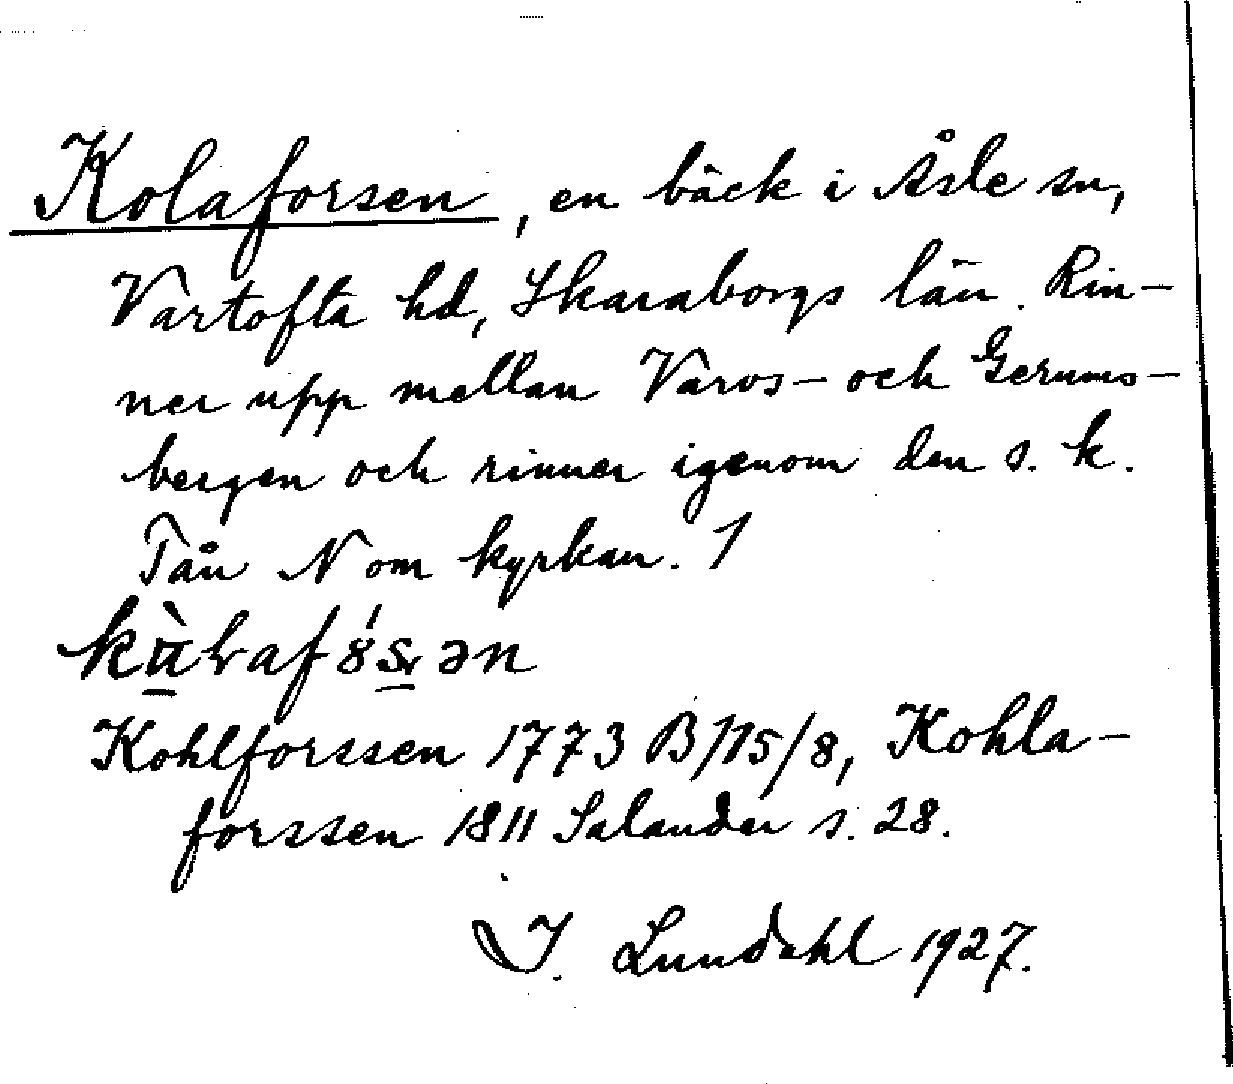 Kolaforsen, en bäck i Åsle sn,
Vartofta hd, Skaraborgs län. Rin-
ner upp mellan Varvs- och Gerums-
bergen och rinner igenom den s. k.
Tån N om kyrkan. 1
Kohlforssen 1773 B/175/8, Kohla-
forssen 1811 Salander s. 28.
I. Lundahl 1927.